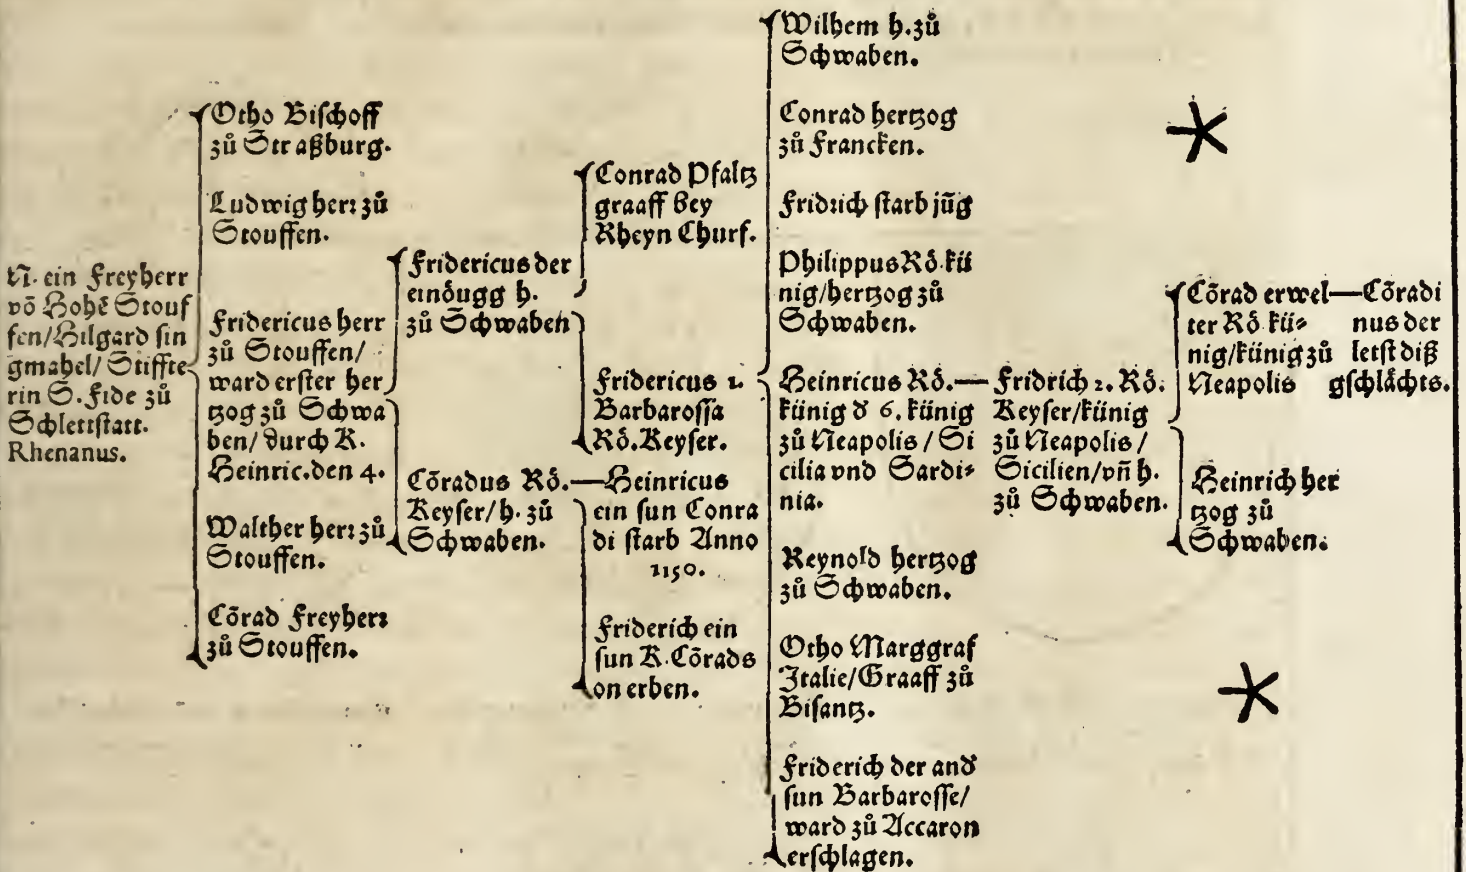 N. ein Freyherr
võ Hohẽ Stouf
fen/Hilgard sin
gmahel/ Stiffte
rin S. Fide zů
Schlettstatt.
Rhenanus.
Otho Bischoff
zů Straßburg.
Ludwig herr zů
Stouffen.
Fridericus herr
zů Stouffen/
ward erster her
tzog zů Schwa
ben/ durch K.
Heinric. den 4.
Walther herr zů
Stouffen.
Cõrad Freyherr
zů Stouffen.
Fridericus der
einöugg h.
zů Schwaben
Cõradus Rö.
Keyser/ h. zů
Schwaben.
Conrad Pfaltz
graaff bey
Rheyn Churf.
Fridericus 1.
Barbarossa
Rö. Keyser.
Heinricus
ein sun Conra
di starb Anno
1150.
Friderich ein
sun K. Cõrads
on erben.
Wilhem h. zů
Schwaben.
Conrad hertzog
zů Francken.
Fridrich starb jũg
Philippus Rö. kü
nig/hertzog zů
Schwaben.
Heinricus Rö.
künig d 6. künig
zů Neapolis / Si
cilia vnd Sardi⸗
nia.
Reynold hertzog
zů Schwaben.
Otho Marggraf
Italie/Graaff zů
Bisantz.
Friderich der and
sun Barbarosse/
ward zů Accaron
erschlagen.
Fridrich 2. Rö.
Keyser/künig
zů Neapolis /
Sicilien/vñ h.
zů Schwaben.
Cõrad erwel
ter Rö. kü⸗
nig/künig zů
Neapolis
Heinrich her
tzog zů
Schwaben.
Cõradi
nus der
letst diß
gschlächts.